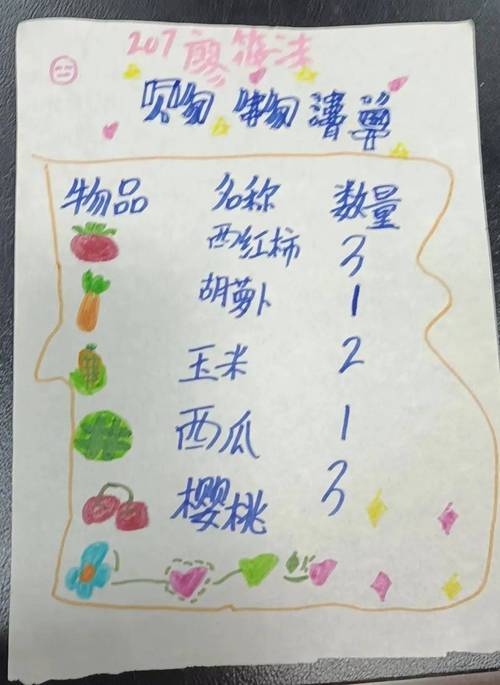 207 廖
购物 清单
物品 名称 数量
西红柿 3
胡萝卜 1
玉米 2
西瓜 1
樱桃 3